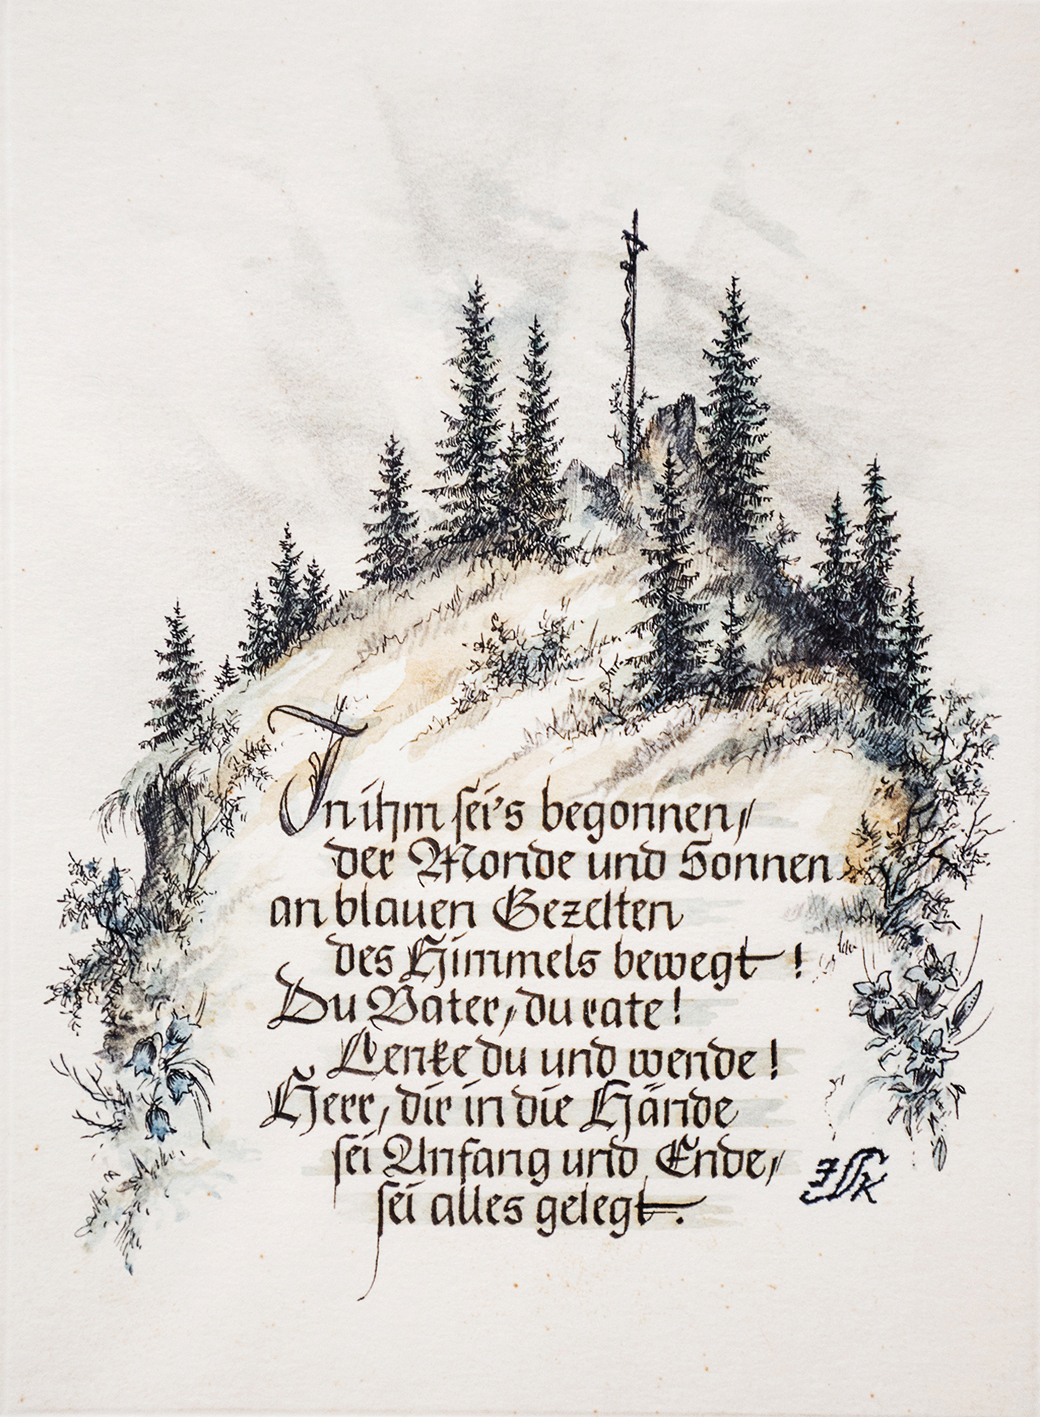 In ihm sei's begonnen,
der Monde und Sonnen
an blauen Gezelten
des Himmels bewegt!
Du Vater, du rate!
Lenke du und wende!
Herr, dir in die Hände
sei Anfang und Ende,
sei alles gelegt.